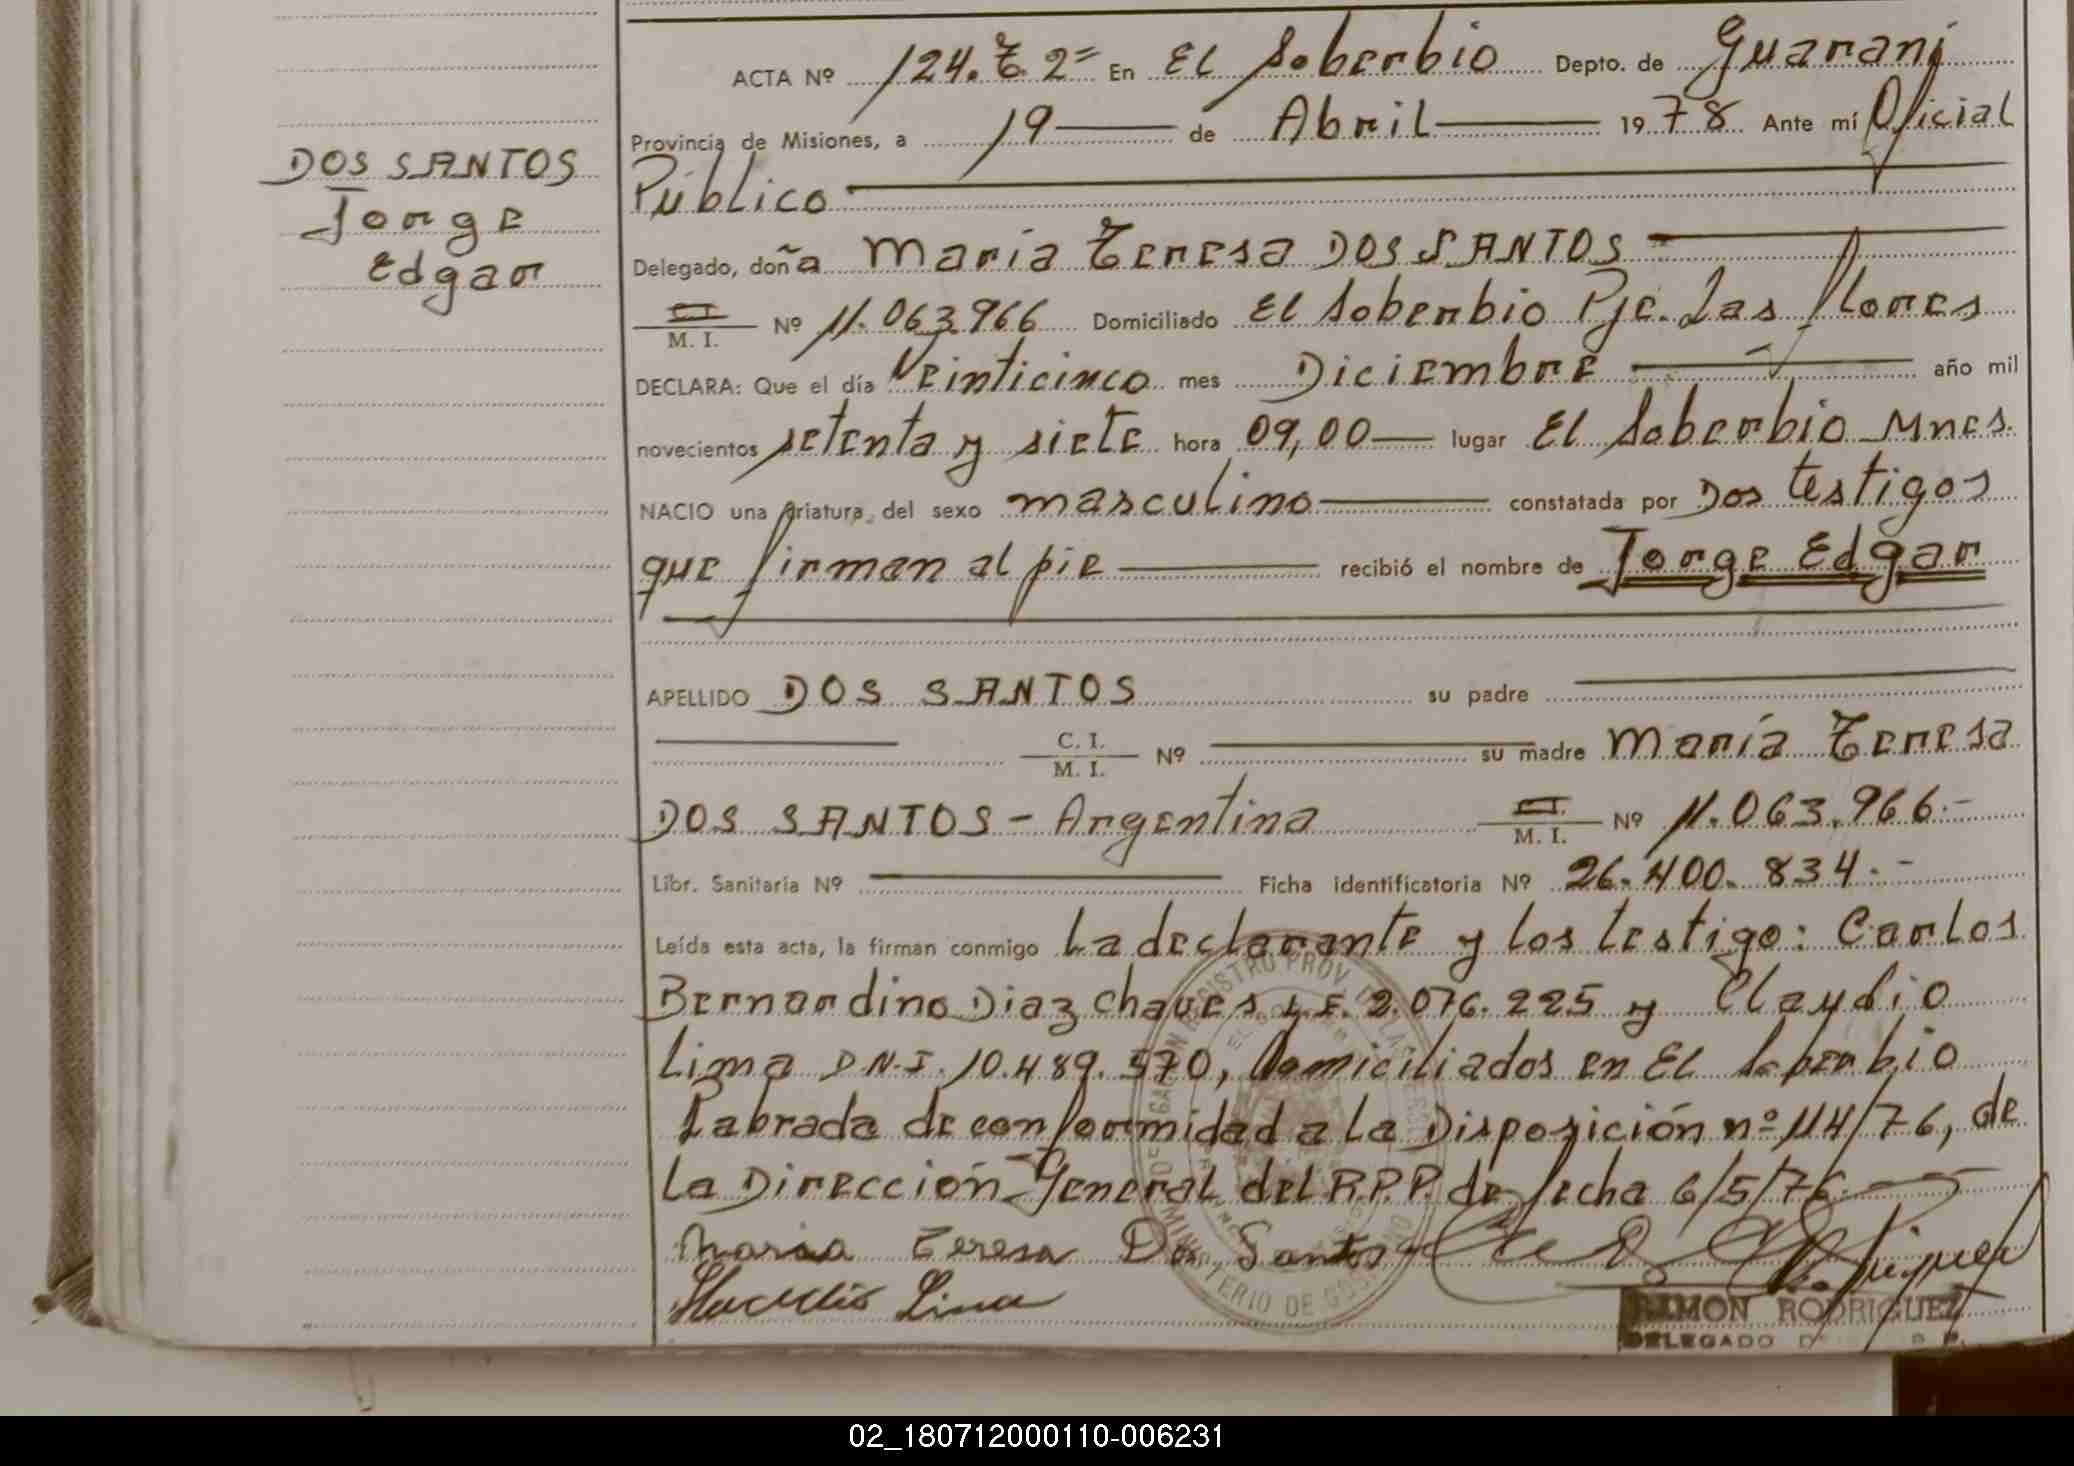 DOS SANTOS
Jorge
Edgar
ACTA Nº 124. T. 2º En El Soberbio Depto. de Guaraní
Provincia de Misiones, a 19 de Abril 1978 Ante mí Oficial
Público
Delegado, doña María Teresa DOS SANTOS
C. I.
M. I. Nº 11.063.966 Domiciliado El Soberbio Pje. Las flores
DECLARA: Que el día Veinticinco mes Diciembre año mil
novecientos setenta y siete hora 09,00 lugar El Soberbio Mnes.
NACIO una criatura del sexo masculino constatada por Dos testigos
que firman al pie recibió el nombre de Jorge Edgar
APELLIDO DOS SANTOS su padre
C. I.
M. I. Nº su madre María Teresa
DOS SANTOS - Argentina C. I. M. I. Nº 11.063.966.-
Libr. Sanitaria Nº Ficha identificatoria Nº 26.400.834.-
Leída esta acta, la firman conmigo La declarante y los testigo: Carlos
Bernardino Diaz Chaves L.E. 2.076.225 y Claudio
Lima D.N.I. 10.489.570, Domiciliados en El Soberbio
Labrada de conformidad a la Disposición nº 114/76, de
La Dirección General del R.P.P. de fecha 6/5/76.
Maria Teresa Dos Santos
Claudio Lima
RAMON RODRIGUEZ
DELEGADO
02_180712000110-006231